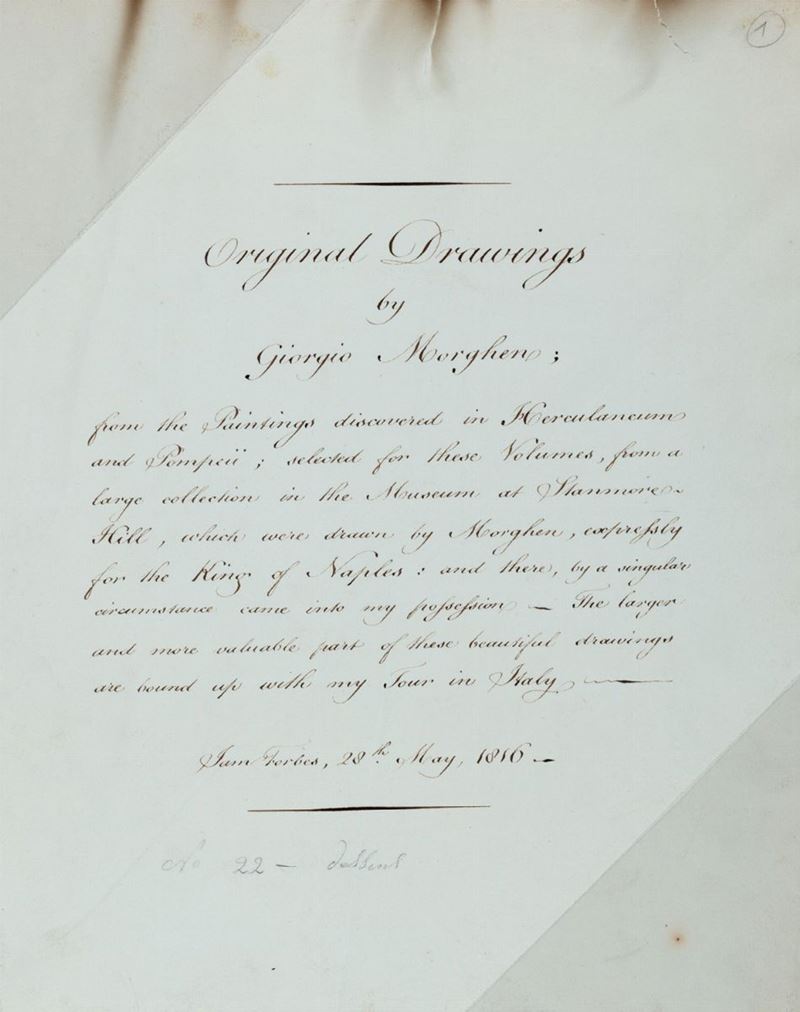 1
Original Drawings
by
Giorgio Morghen ;
from the Paintings discovered in Herculaneum
and Pompeii ; selected for these Volumes, from a
large collection in the Museum at Stanmore-
Hill, which were drawn by Morghen, expressly
for the King of Naples : and there, by a singular
circumstance came into my possession — The larger
and more valuable part of these beautiful drawings
are bound up with my Tour in Italy —
Jam Forbes, 28th May, 1816 —
No 22 —